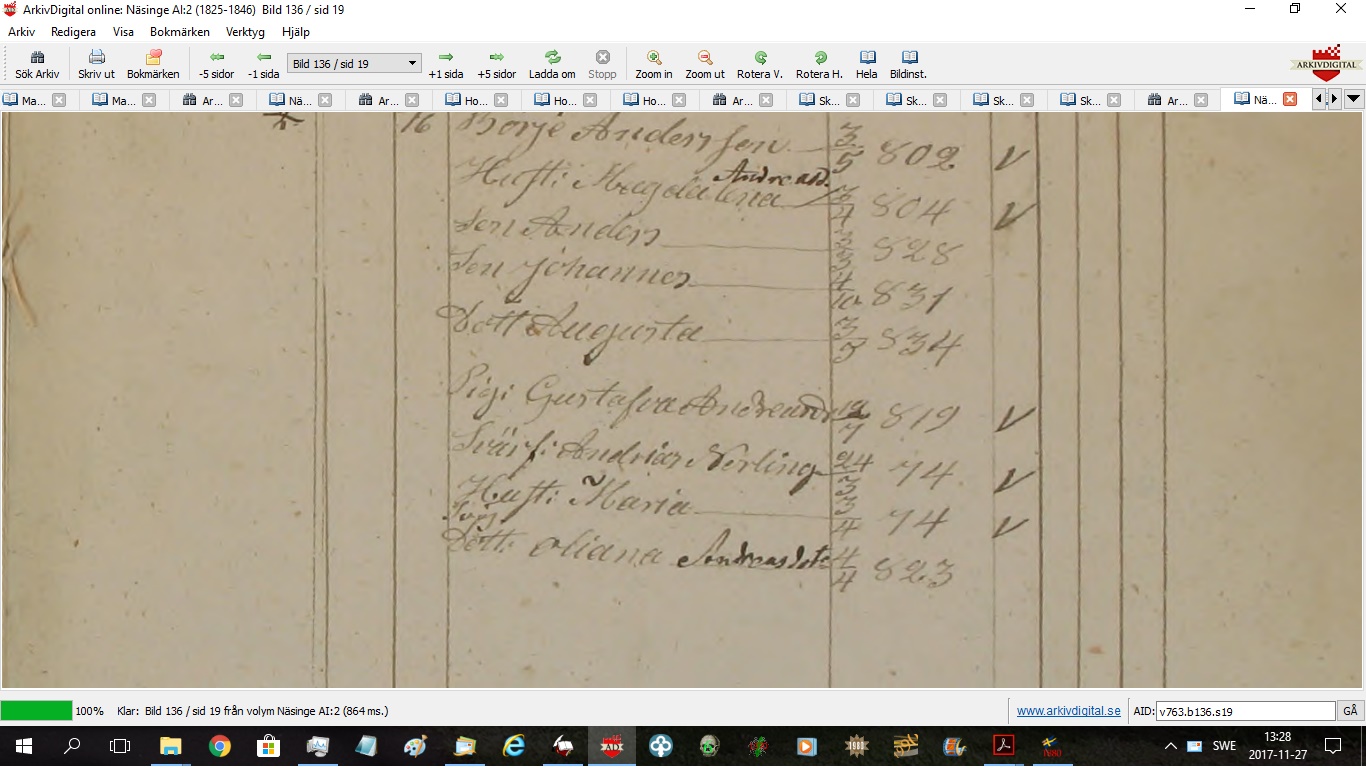 ArkivDigital online: Näsinge AI:2 (1825-1846) Bild 136 / sid 19
Arkiv Redigera Visa Bokmärken Verktyg Hjälp
Sök Arkiv Skriv ut Bokmärken -5 sidor -1 sida Bild 136 / sid 19 +1 sida +5 sidor Ladda om Stopp Zoom in Zoom ut Rotera V. Rotera H. Hela Bildinst. ARKIVDIGITAL
Ma... Ma... Ar... Nä... Ar... Ho... Ho... Ho... Ar... Sk... Sk... Sk... Sk... Ar... Nä...
16 Börje Andersson 3/5 802 V
Andreasd.
Hust: Magdalena 3/4 804 V
Son Anders 3/3 828
Son Johannes 4/10 831
Dott Augusta 3/3 834
Pig: Gustafva Andreasdr 12/7 819 V
Svärf: Andrias Nerling 24/3 74 V
Hust: Maria 3/4 74 V
Dott: Oliana Andreasdotr 4/4 823
100% Klar: Bild 136 / sid 19 från volym Näsinge AI:2 (864 ms.) www.arkivdigital.se AID: v763.b136.s19 GÅ
AD SWE 13:28
2017-11-27